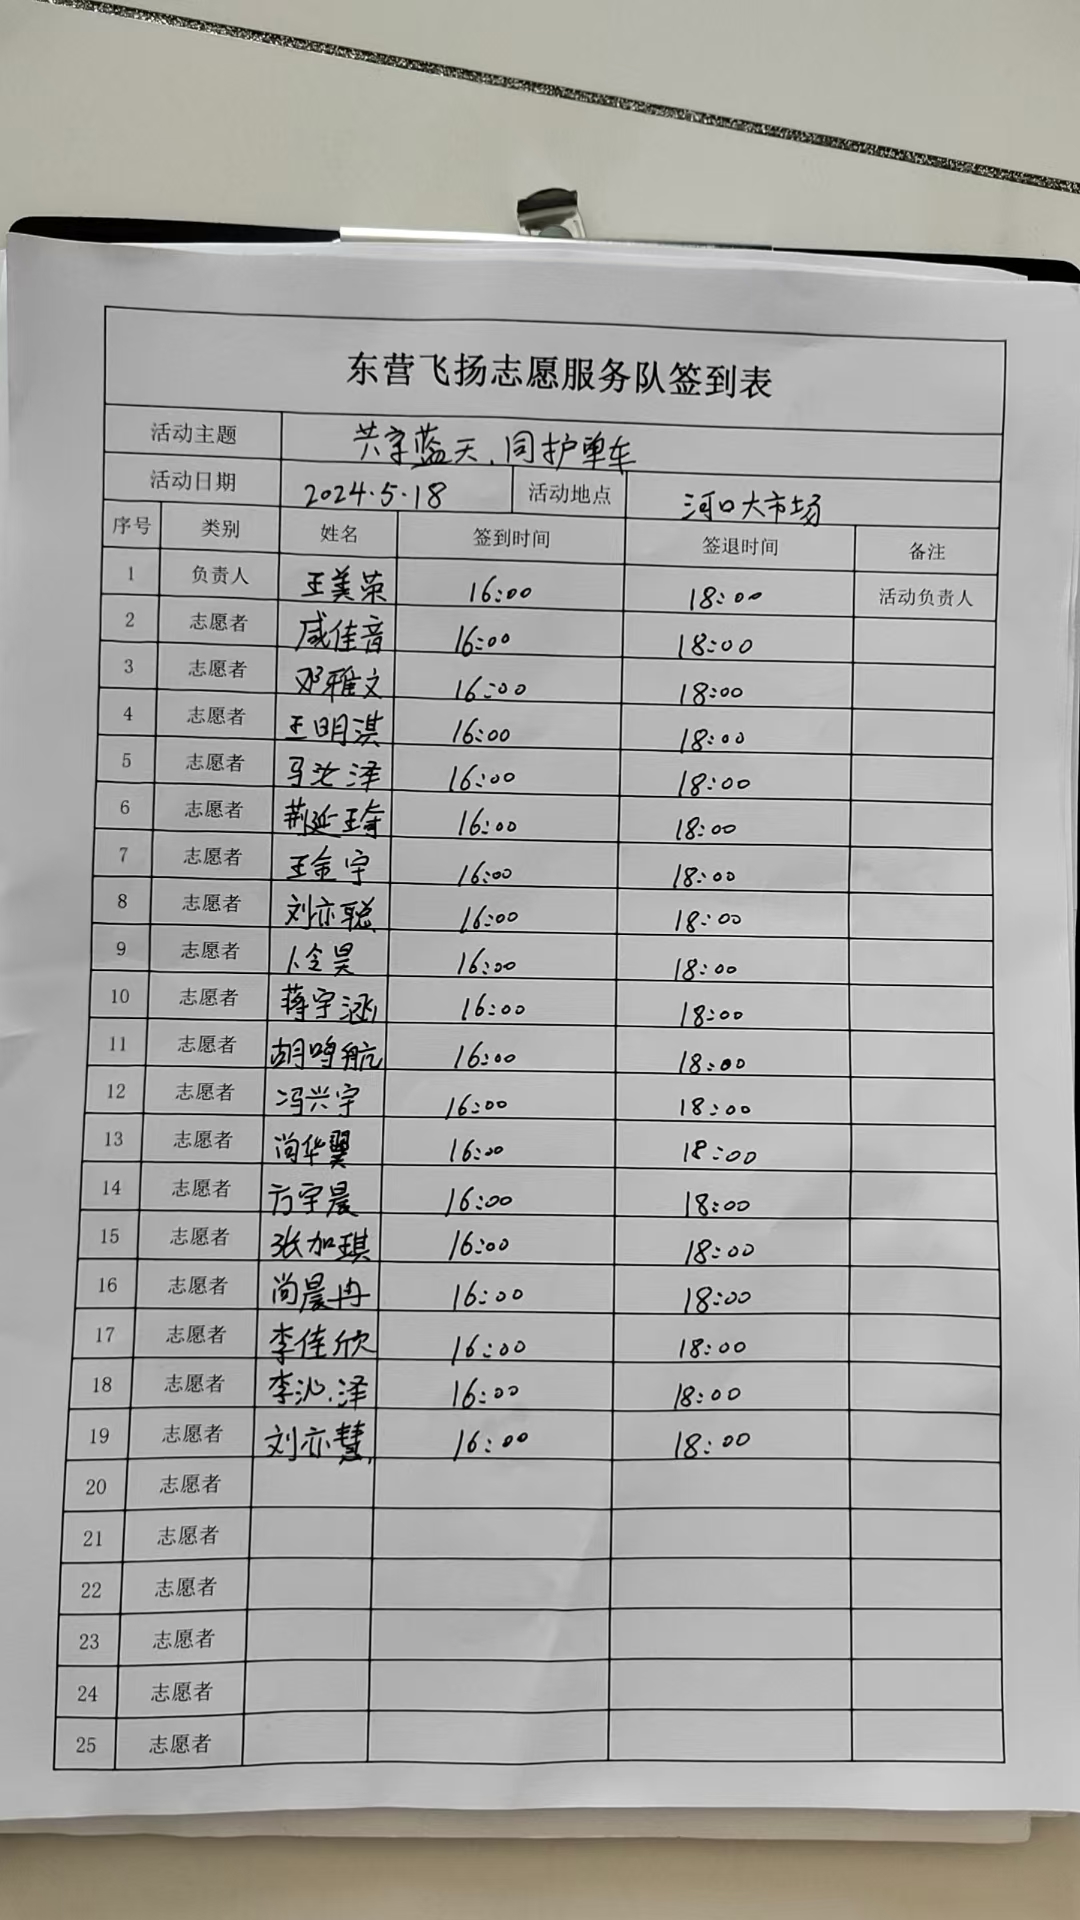 东营飞扬志愿服务队签到表
活动主题 共享蓝天、同护单车
活动日期 2024.5.18 活动地点 河口大市场
序号 类别 姓名 签到时间 签退时间 备注
1 负责人 王美荣 16:00 18:00 活动负责人
2 志愿者 咸佳音 16:00 18:00
3 志愿者 邓雅文 16:00 18:00
4 志愿者 王明淇 16:00 18:00
5 志愿者 马 泽 16:00 18:00
6 志愿者 荆延琦 16:00 18:00
7 志愿者 王金宇 16:00 18:00
8 志愿者 刘亦聪 16:00 18:00
9 志愿者 卜令昊 16:00 18:00
10 志愿者 蒋宇涵 16:00 18:00
11 志愿者 胡鸣航 16:00 18:00
12 志愿者 冯兴宇 16:00 18:00
13 志愿者 尚华翼 16:00 18:00
14 志愿者 方宇晨 16:00 18:00
15 志愿者 张加琪 16:00 18:00
16 志愿者 尚晨冉 16:00 18:00
17 志愿者 李佳欣 16:00 18:00
18 志愿者 李沁泽 16:00 18:00
19 志愿者 刘亦慧 16:00 18:00
20 志愿者
21 志愿者
22 志愿者
23 志愿者
24 志愿者
25 志愿者